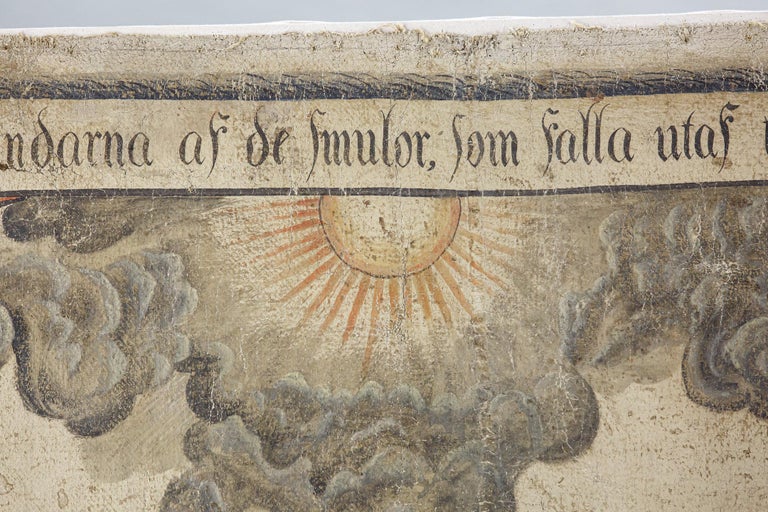 ndarna af de smulor, som falla utaf